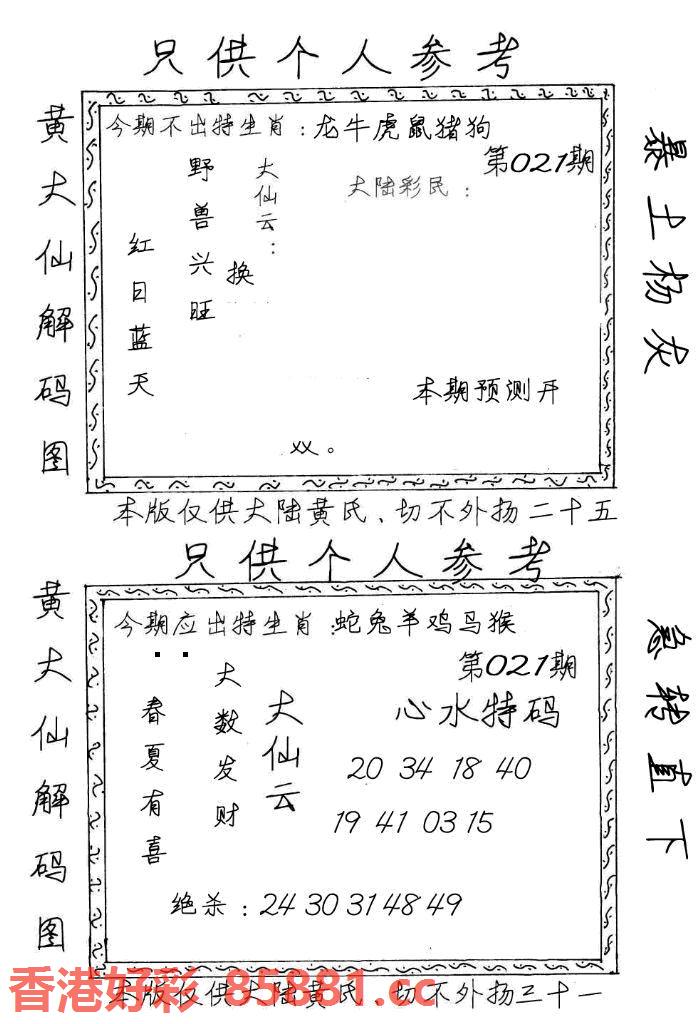 只供个人参考
黄大仙解码图
今期不出特生肖：龙牛虎鼠猪狗
第021期
大陆彩民：
大仙云：
野兽兴旺
换
红日蓝天
本期预测开
双。
暴土杨灰
本版仅供大陆黄氏、切不外扬二十五
只供个人参考
黄大仙解码图
今期应出特生肖：蛇兔羊鸡马猴
第021期
大仙云
大数发财
春夏有喜
心水特码
20 34 18 40
19 41 03 15
绝杀：24 30 31 48 49
急转直下
本版仅供大陆黄氏、切不外扬三十一
香港好彩 85881.cc